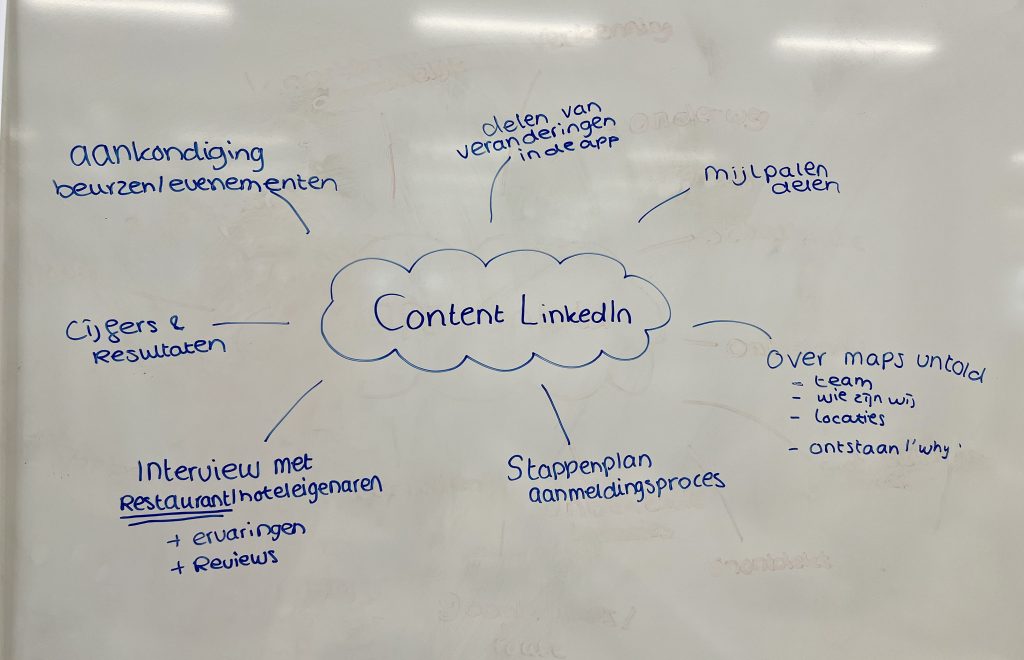 aankondiging
beurzen/evenementen
delen van
veranderingen
in de app
mijlpalen
delen
Content LinkedIn
Cijfers &
Resultaten
over maps untold
- team
- wie zijn wij
- locaties
- ontstaan/'why'
Interview met
Restaurant/hoteleigenaren
+ ervaringen
+ Reviews
Stappenplan
aanmeldingsproces